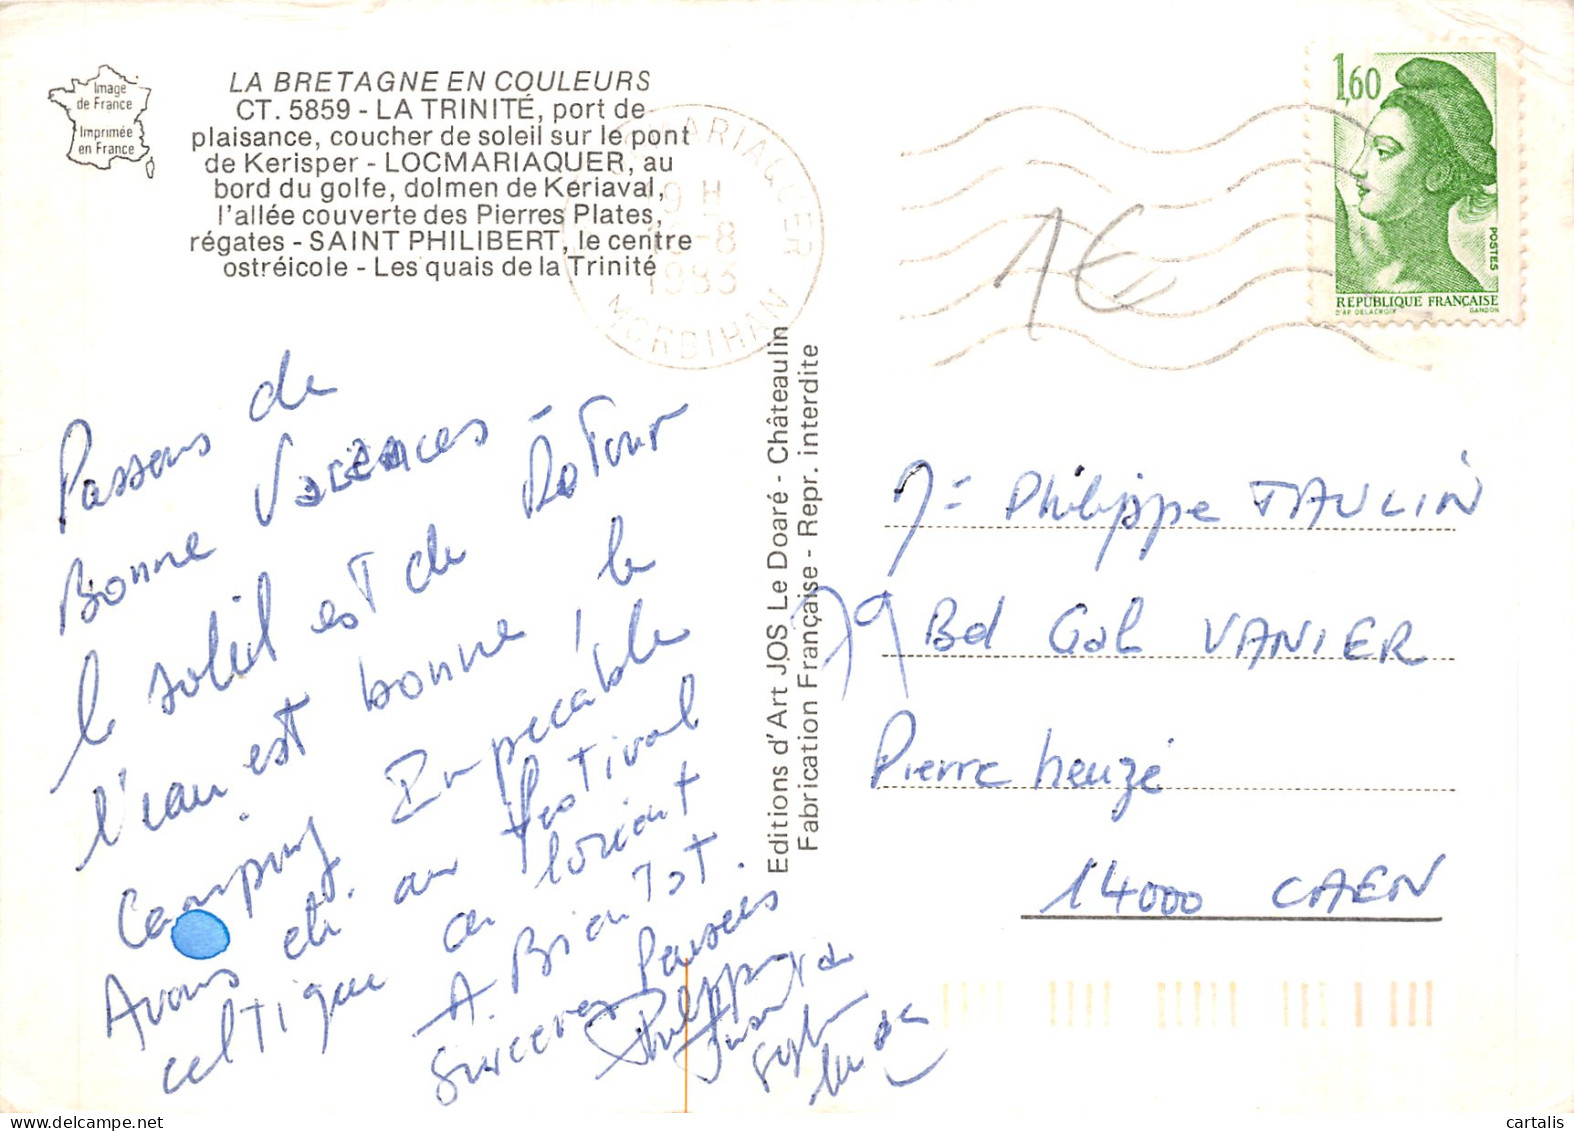 Image
de France
Imprimée
en France
LA BRETAGNE EN COULEURS
CT. 5859 - LA TRINITÉ, port de
plaisance, coucher de soleil sur le pont
de Kerisper - LOCMARIAQUER, au
bord du golfe, dolmen de Keriaval,
l'allée couverte des Pierres Plates,
régates - SAINT PHILIBERT, le centre
ostréicole - Les quais de la Trinité
MARIAQUER
19 H
-8
1983
MORBIHAN
1,60
POSTES
REPUBLIQUE FRANÇAISE
D'AP. DELACROIX GANDON
1€
Passons de
Bonne Vacances -
le soleil est de Retour
l'eau est bonne, le
Camping Impecable
Avons été au festival
celtique de lorient
A Bientot.
Sinceres Pensées
Philippe
Editions d'Art JOS Le Doaré - Châteaulin
Fabrication Française - Repr. interdite
Mr Philippe TAULIN
79 Bd Gal VANIER
Pierre heuzé
14000 CAEN
www.delcampe.net
cartalis